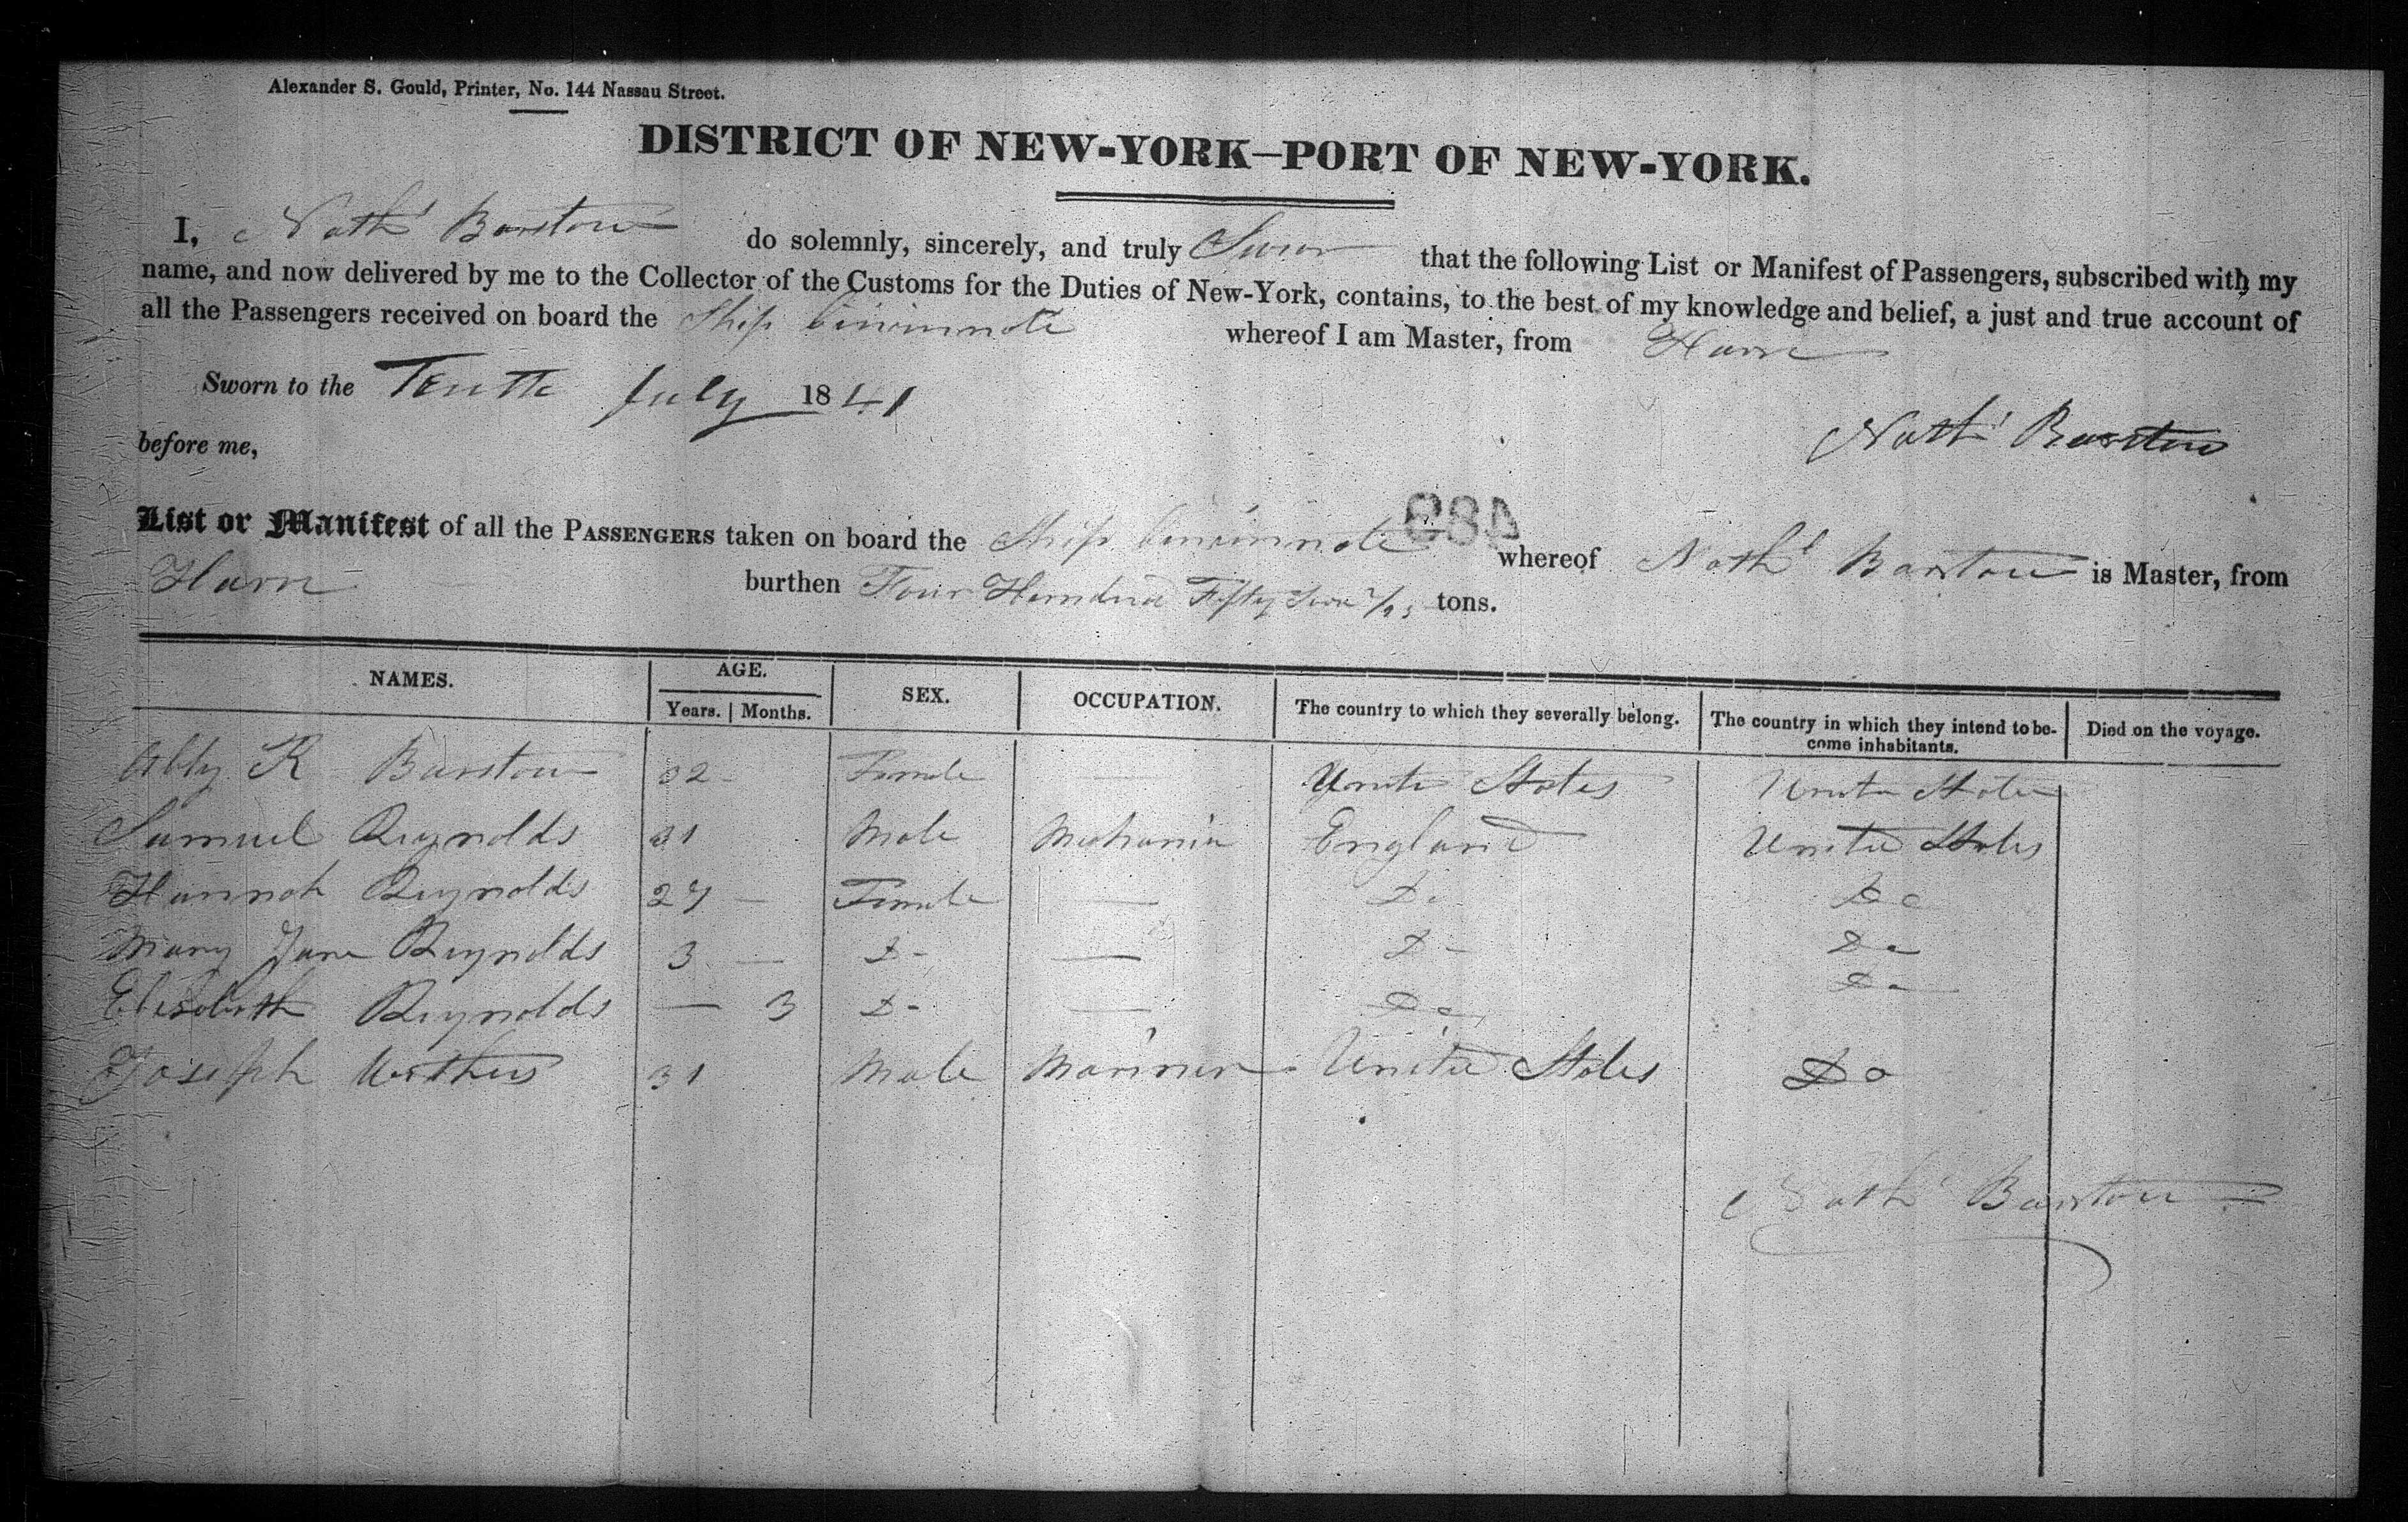 Alexander S. Gould, Printer, No. 144 Nassau Street.
DISTRICT OF NEW-YORK—PORT OF NEW-YORK.
I, Nathl Barstow do solemnly, sincerely, and truly Swear that the following List or Manifest of Passengers, subscribed with my
name, and now delivered by me to the Collector of the Customs for the Duties of New-York, contains, to the best of my knowledge and belief, a just and true account of
all the Passengers received on board the Ship Cincinnati whereof I am Master, from Havre
Sworn to the Tenth July 1841
before me,
Nathl Barstow
List or Manifest of all the PASSENGERS taken on board the Ship Cincinnati whereof Nathl Barstow is Master, from
Havre burthen Four Hundred Fifty Two 7/95 tons.
NAMES. AGE. SEX. OCCUPATION. The country to which they severally belong. The country in which they intend to be- Died on the voyage.
Years. Months. come inhabitants.
Abby R Barstow 32 - Female — United States United States
Samuel Reynolds 31 Male Mechanic England United States
Hannah Reynolds 27 — Female — Do Do
Mary Jane Reynolds 3 — Do — Do Do
Elisabeth Reynolds — 3 Do — Do Do
Joseph 31 Male Mariner United States Do
Nathl Barstow